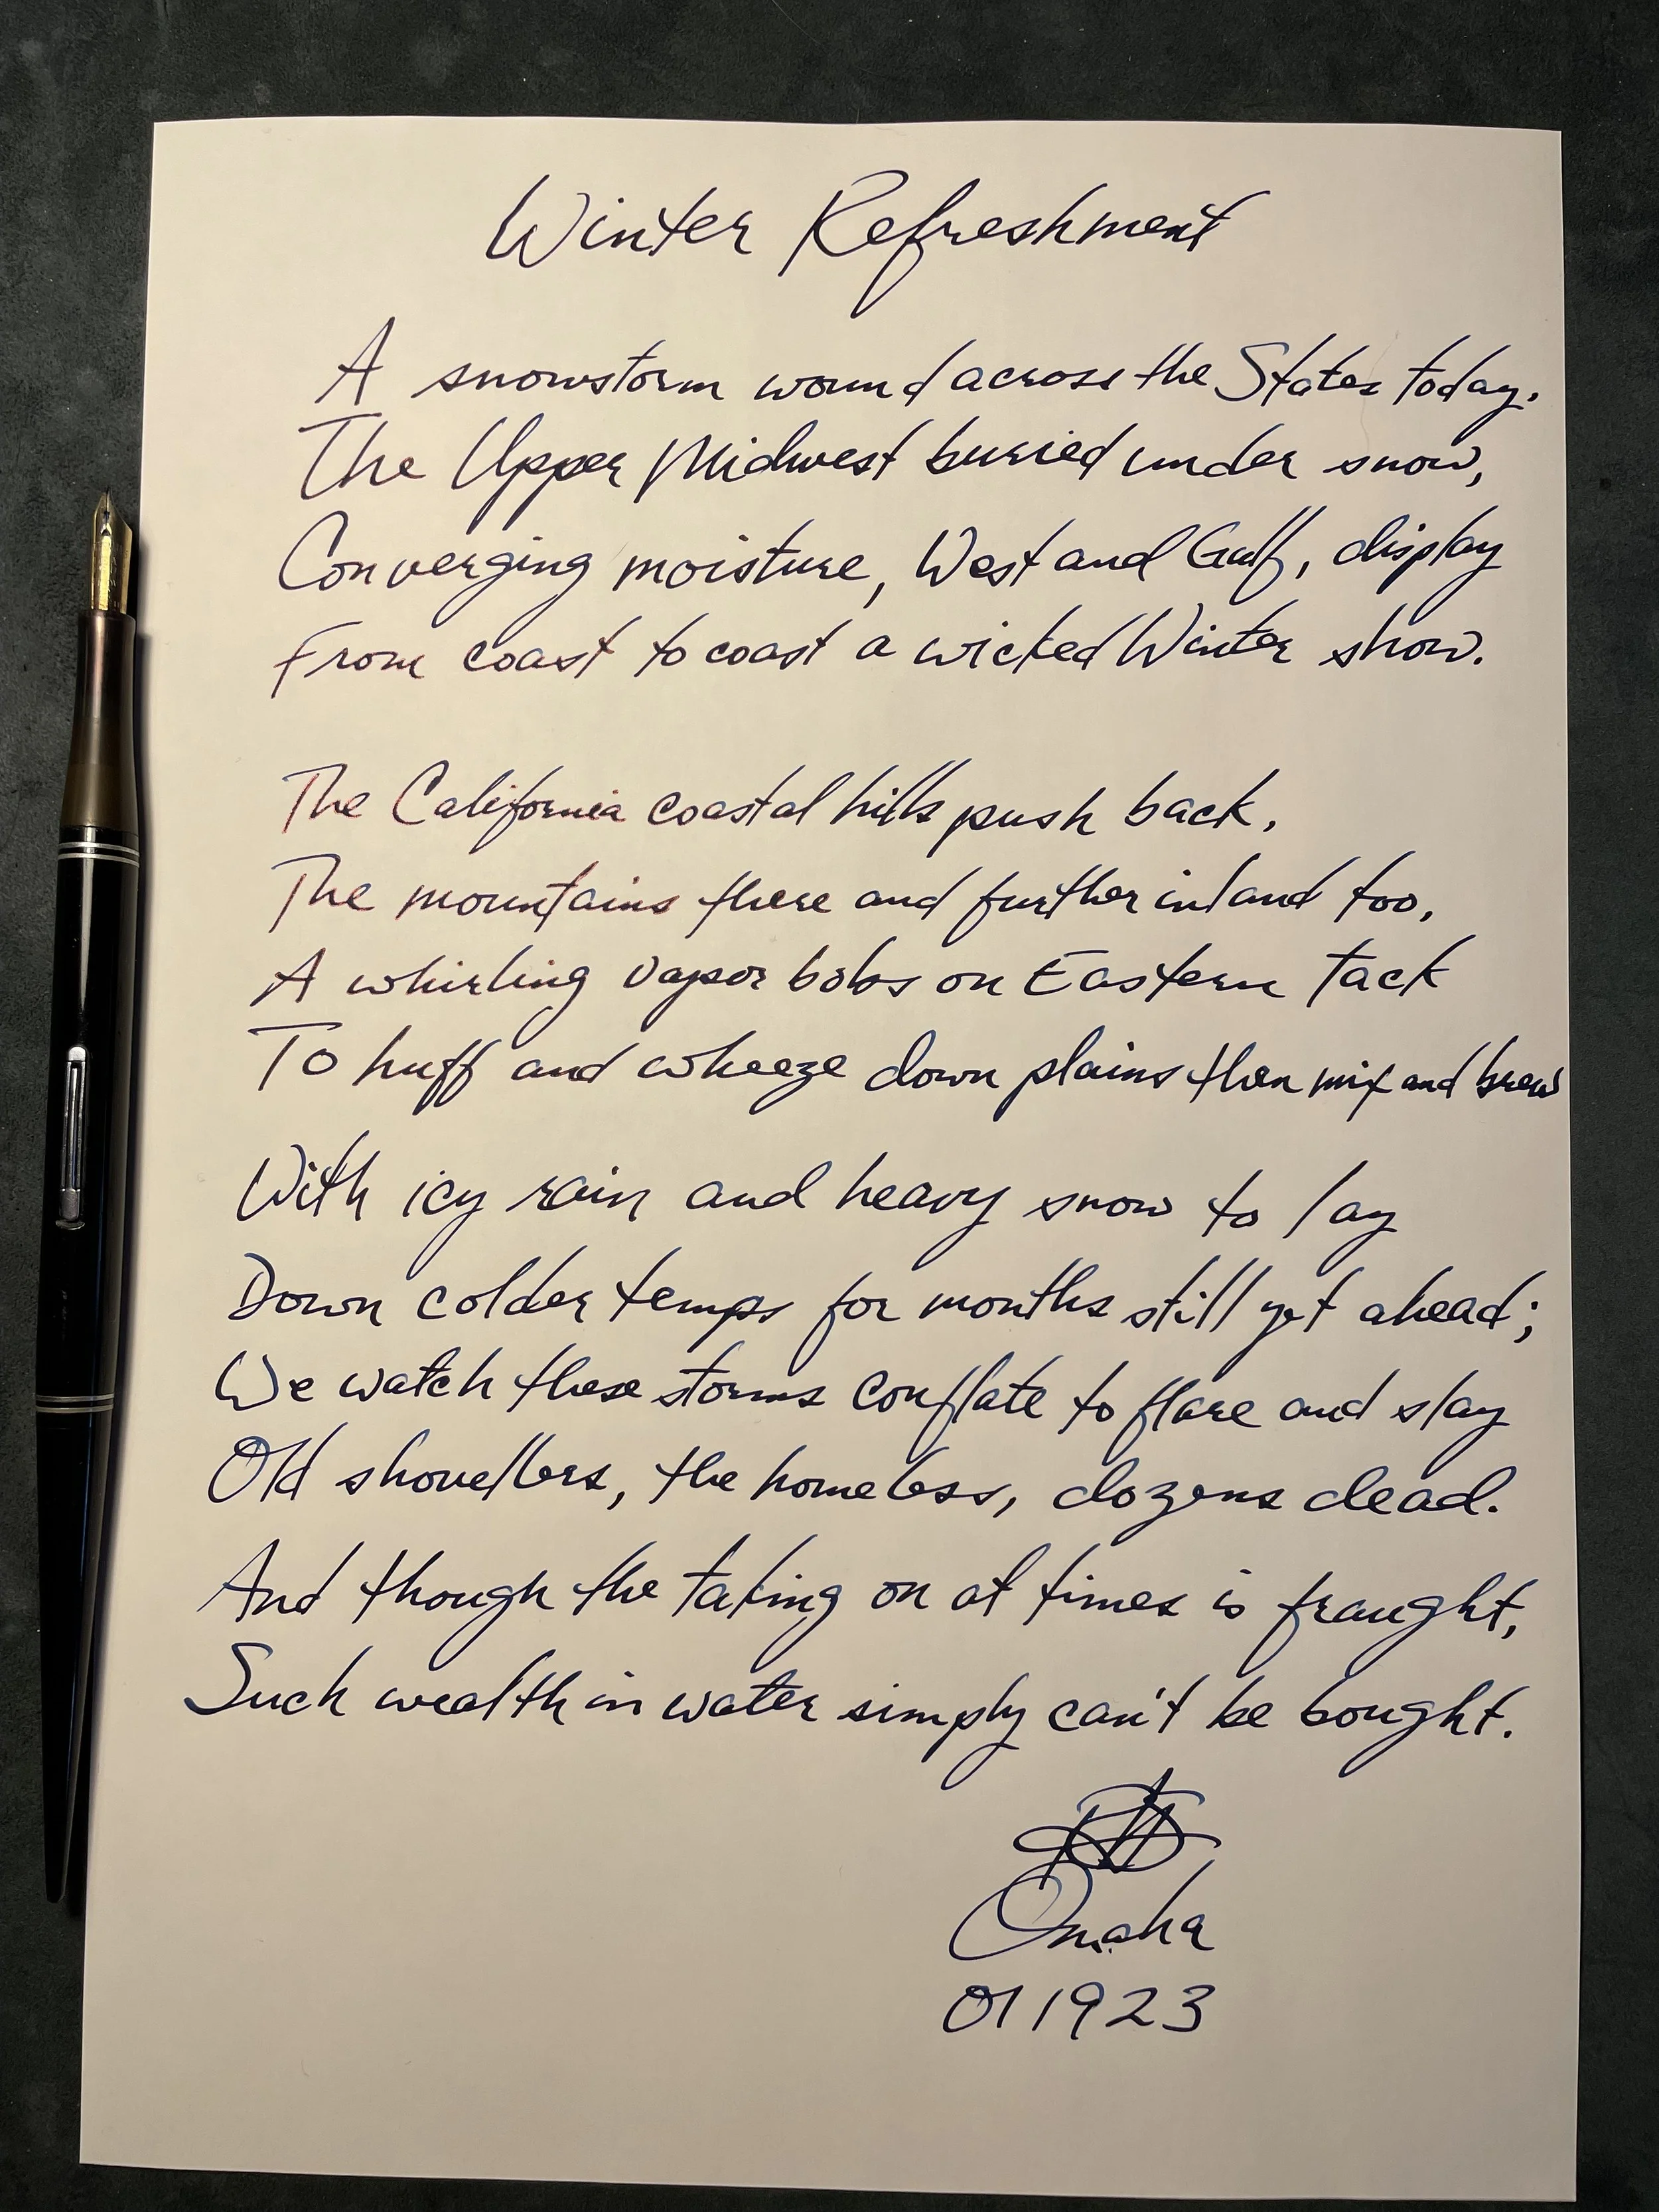 Winter Refreshment
A snowstorm wound across the States today.
The Upper Midwest buried under snow,
Converging moisture, West and Gulf, display
From coast to coast a wicked Winter show.
The California coastal hills push back,
The mountains there and further inland too,
A whirling vapor bobs on Eastern tack
To huff and wheeze down plains then mix and brew
With icy rain and heavy snow to lay
Down colder temps for months still yet ahead;
We watch these storms conflate to flare and slay
Old shovellers, the homeless, dozens dead.
And though the taking on at times is fraught,
Such wealth in water simply can't be bought.
Omaha
011923